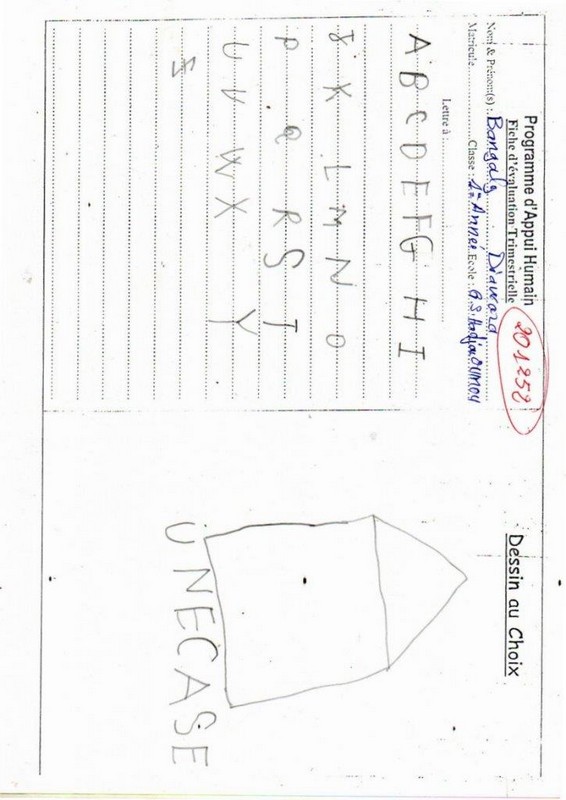 Programme d'Appui Humain
Fiche d'évaluation Trimestrielle
201252
Nom & Prénom(s) : Bangaly Diawara
Matricule Classe : 1ère Année Ecole : G.S. Hadja OUMOU
Lettre à :
A B C D E F G H I
J K L M N O
P Q R S T
U V W X Y
Z
Dessin au Choix
UNE CASE